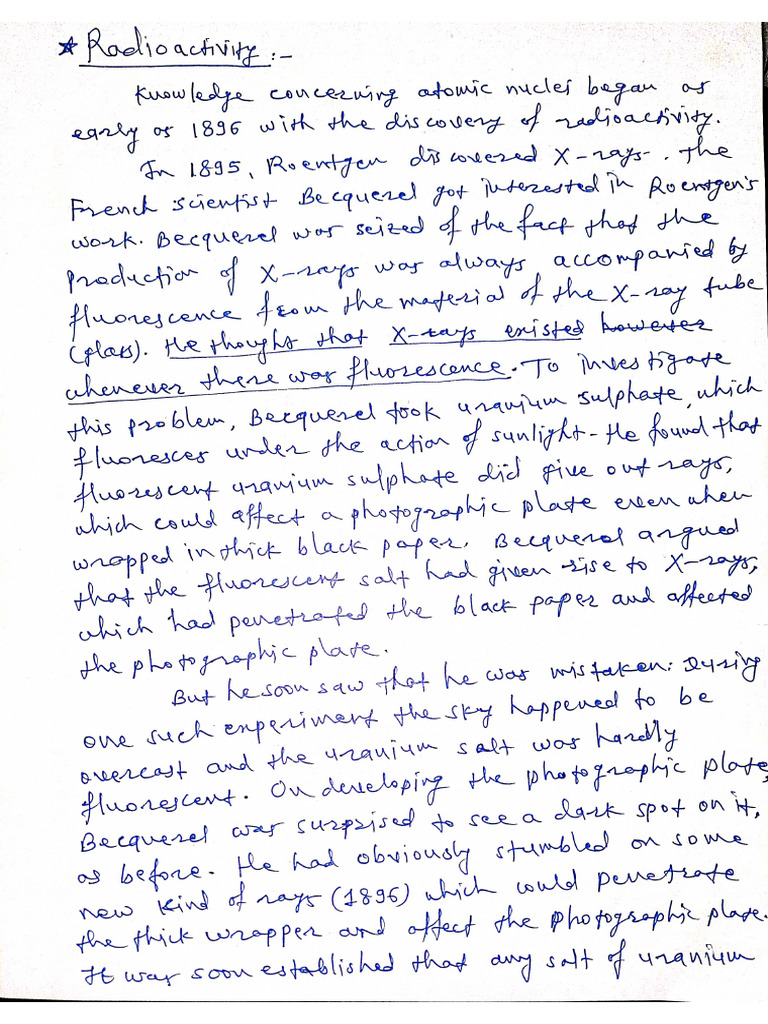 * Radioactivity :-
Knowledge concerning atomic nuclei began as
early as 1896 with the discovery of radioactivity.
In 1895, Roentgen discovered X-rays. The
French scientist Becquerel got interested in Roentgen's
work. Becquerel was seized of the fact that the
production of X-rays was always accompanied by
fluorescence from the material of the X-ray tube
(glass). He thought that X-rays existed however
whenever there was fluorescence. To investigate
this problem, Becquerel took uranium sulphate, which
fluoresces under the action of sunlight. He found that
fluorescent uranium sulphate did give out rays,
which could affect a photographic plate even when
wrapped in thick black paper. Becquerel argued
that the fluorescent salt had given rise to X-rays,
which had penetrated the black paper and affected
the photographic plate.
But he soon saw that he was mistaken: During
one such experiment the sky happened to be
overcast and the uranium salt was hardly
fluorescent. On developing the photographic plate,
Becquerel was surprised to see a dark spot on it,
as before. He had obviously stumbled on some
new kind of rays (1896) which could penetrate
the thick wrapper and affect the photographic plate.
It was soon established that any salt of uranium